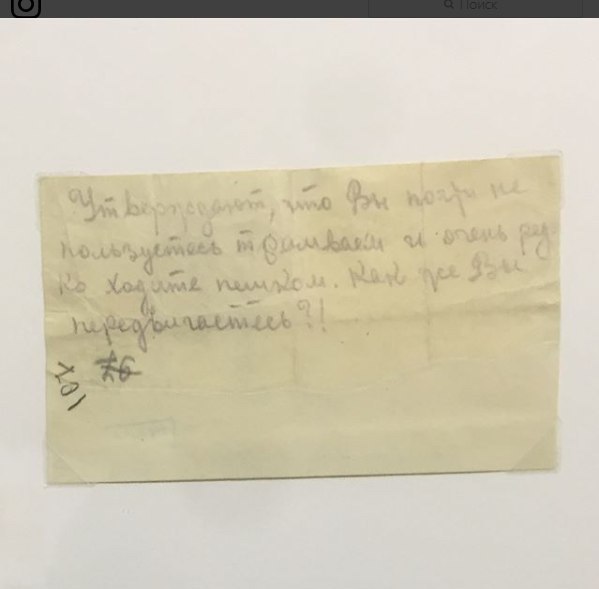 Поиск
Утверждают, что Вы почти не
пользуетесь трамваем и очень ред-
ко ходите пешком. Как же Вы
передвигаетесь?!
101